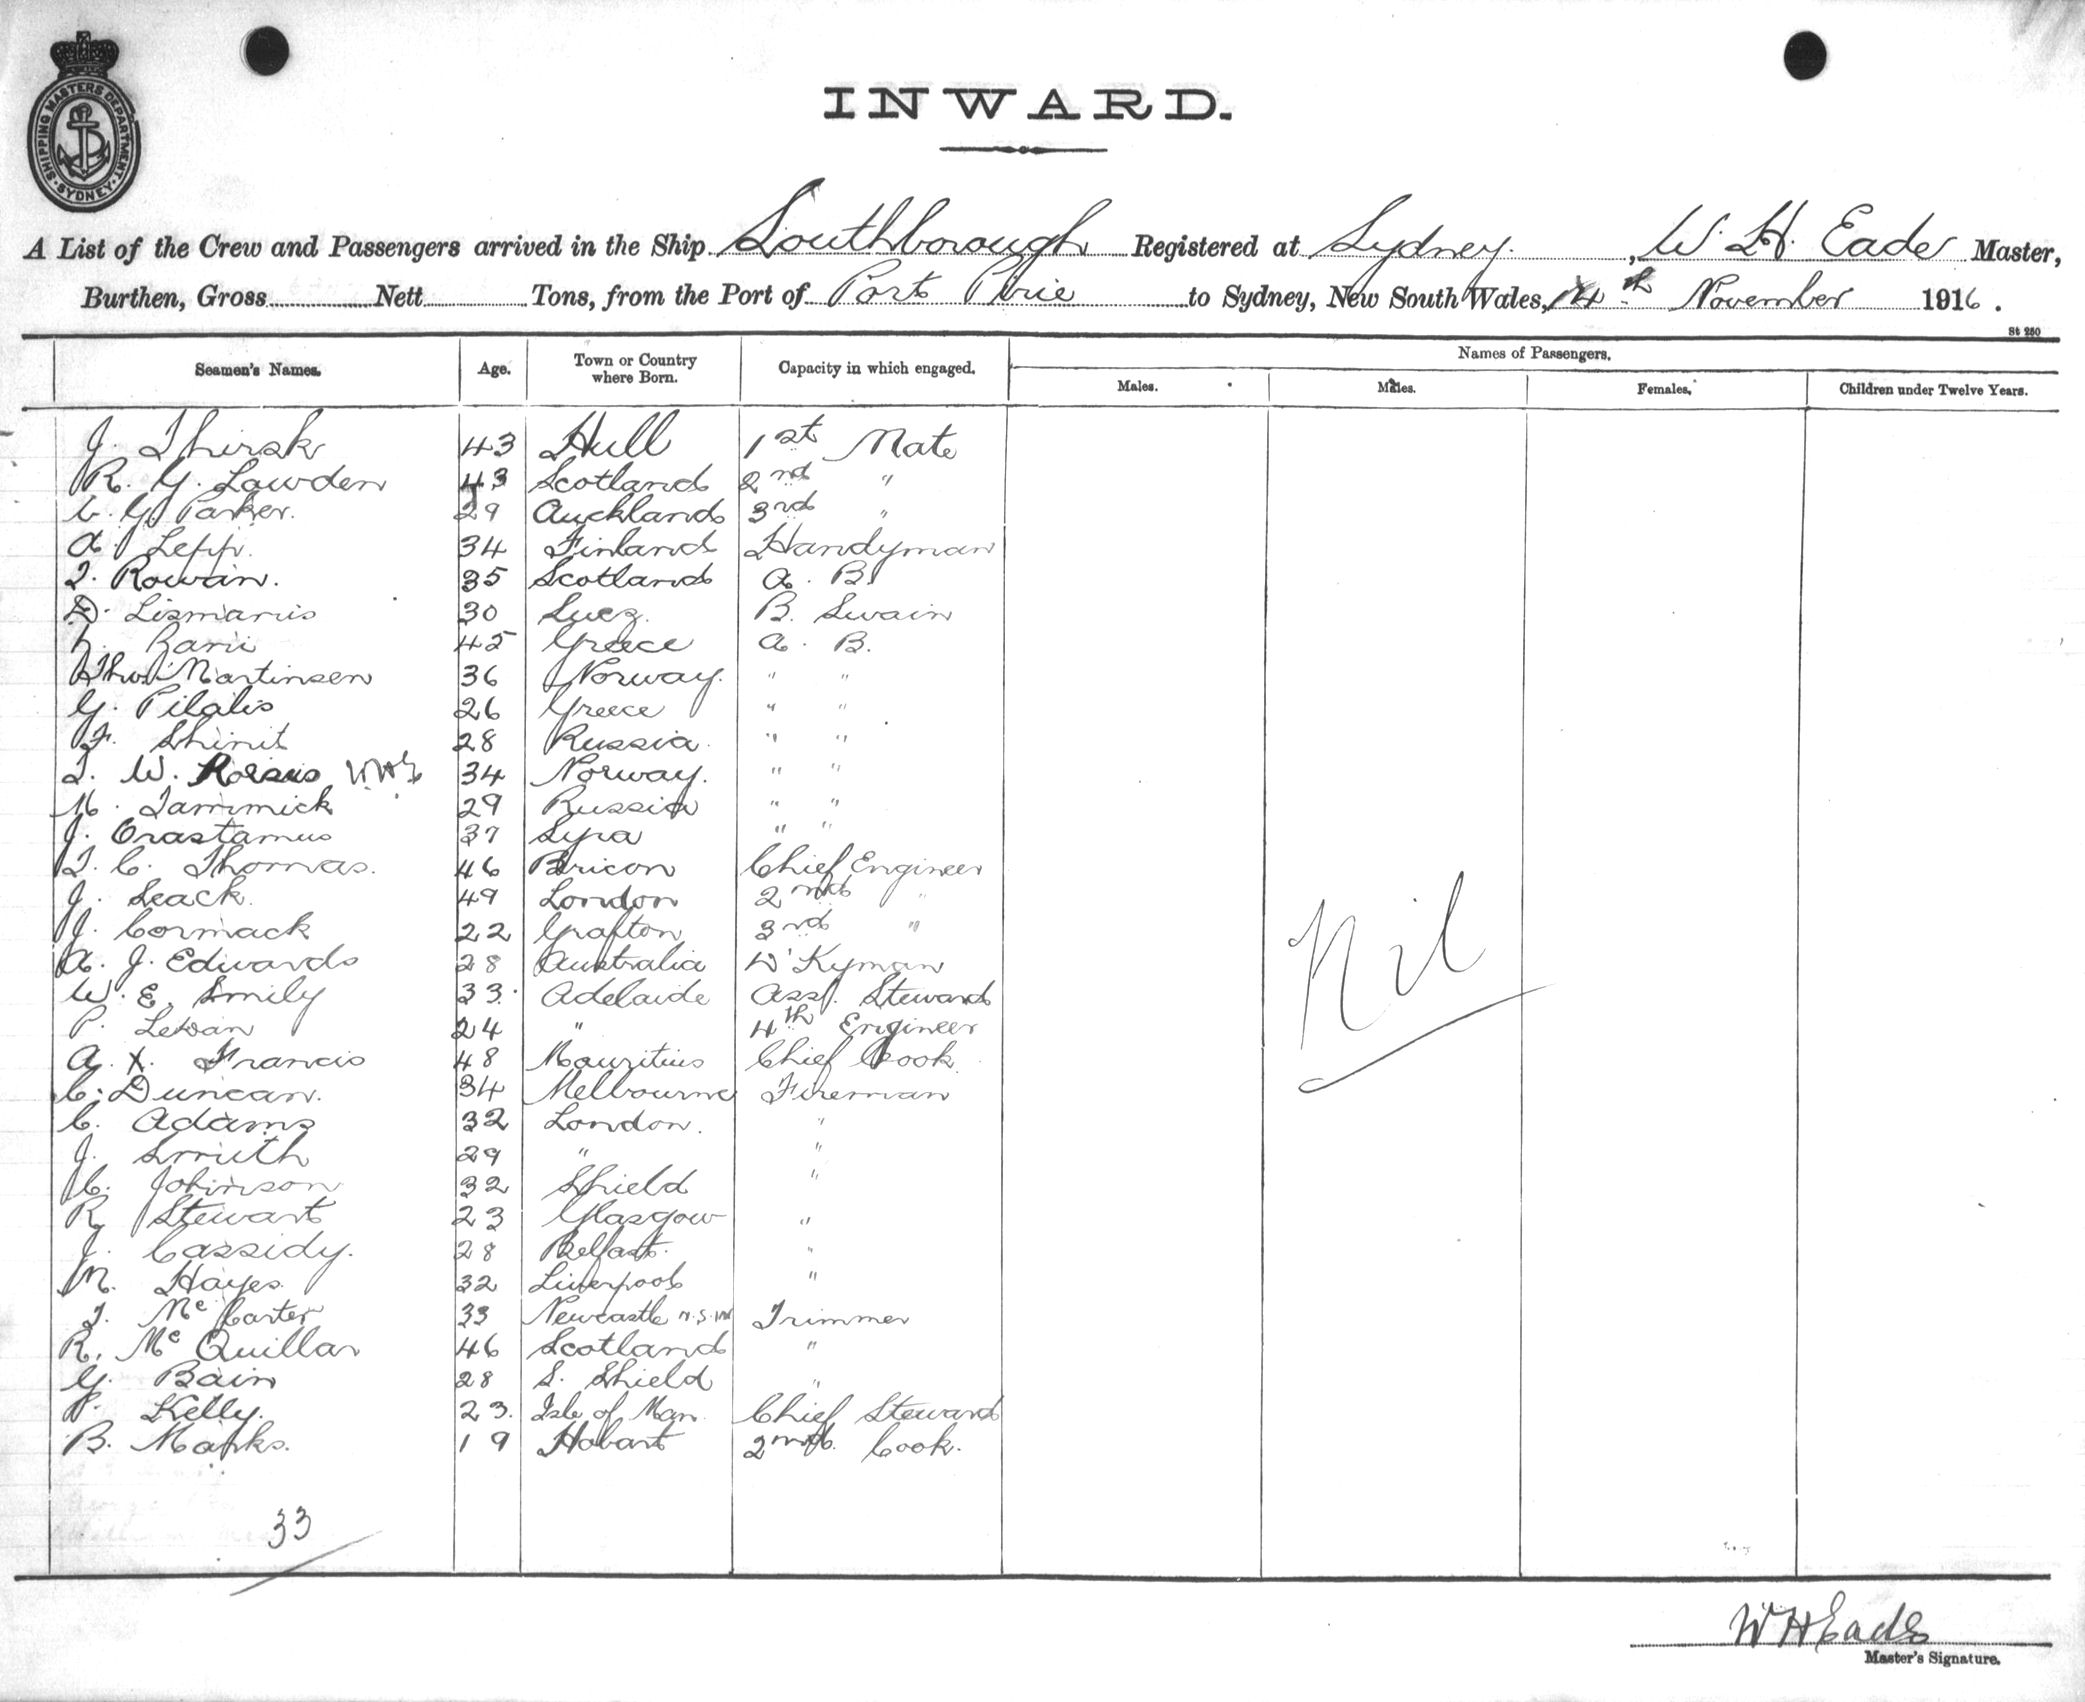 SHIPPING MASTERS DEPARTMENT · SYDNEY ·
INWARD.
A List of the Crew and Passengers arrived in the Ship Southborough Registered at Sydney. , W. H. Eade Master,
Burthen, Gross Nett Tons, from the Port of Port Pirie to Sydney, New South Wales, 14th November 1916.
St 250
Seamen's Names. Age. Town or Country where Born. Capacity in which engaged. Names of Passengers.
Males. Males. Females. Children under Twelve Years.
J. Thirsk 43 Hull 1st Mate
R. G. Lowden 43 Scotland 2nd "
C. G. Parker. 29 Auckland 3rd "
A. Lepp. 34 Finland Handyman
T. Rowan. 35 Scotland A. B.
D. Lismanis 30 Suez. B. Swain
Rarii 45 Greece A. B.
Martinsen 36 Norway. " "
G. Pilalis 26 Greece " "
F. Shinit 28 Russia. " "
T. W. 34 Norway. " "
M. Tammick 29 Russia " "
J. Orastamus 37 Syra " "
T. C. Thomas. 46 Bricon Chief Engineer
J. Seack. 49 London 2nd "
J. Cormack 22 Grafton 3rd "
A. J. Edwards 28 Australia D'Kyman
W. E. Smily 33. Adelaide Asst. Steward
P. Lewan 24 " 4th Engineer
A. X. Francis 48 Mauritius Chief Cook
C. Duncan. 34 Melbourne Fireman
C. Adams 32 London. "
J. Smith 29 " "
C. Johnson 32 Shield "
R. Stewart 23 Glasgow "
J. Cassidy. 28 Belfast. "
M. Hayes. 32 Liverpool "
T. McCarter 33 Newcastle N.S.W Trimmer
R. McQuillan 46 Scotland "
G. Bain 28 S. Shield "
P. Kelly. 23. Isle of Man. Chief Steward
B. Marks. 19 Hobart 2nd. Cook.
Nil
33
W H Eade
Master's Signature.